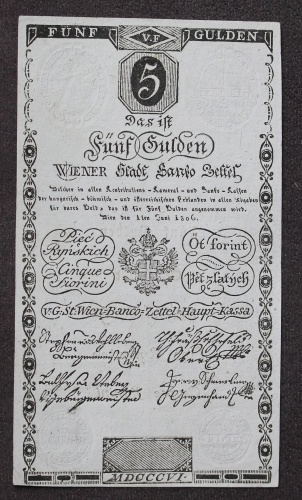 FÜNF V.F GULDEN
5
Das ist
Fünf Gulden
WIENER Stadt Banko Zettel
Welcher in allen Kontributions- Kameral- und Banko-Kassen
der hungarisch- böhmisch- und österreichischen Erblanden in allen Abgaben
für bares Geld, das ist für Fünf Gulden angenommen wird.
Wien den 1ten Juni 1806.
Pięć
Ryńskich
Cinque
Fiorini
Öt forint
Pět zlatych
v. G. St. Wien-Banco-Zettel Haupt-Kassa
MDCCCVI.